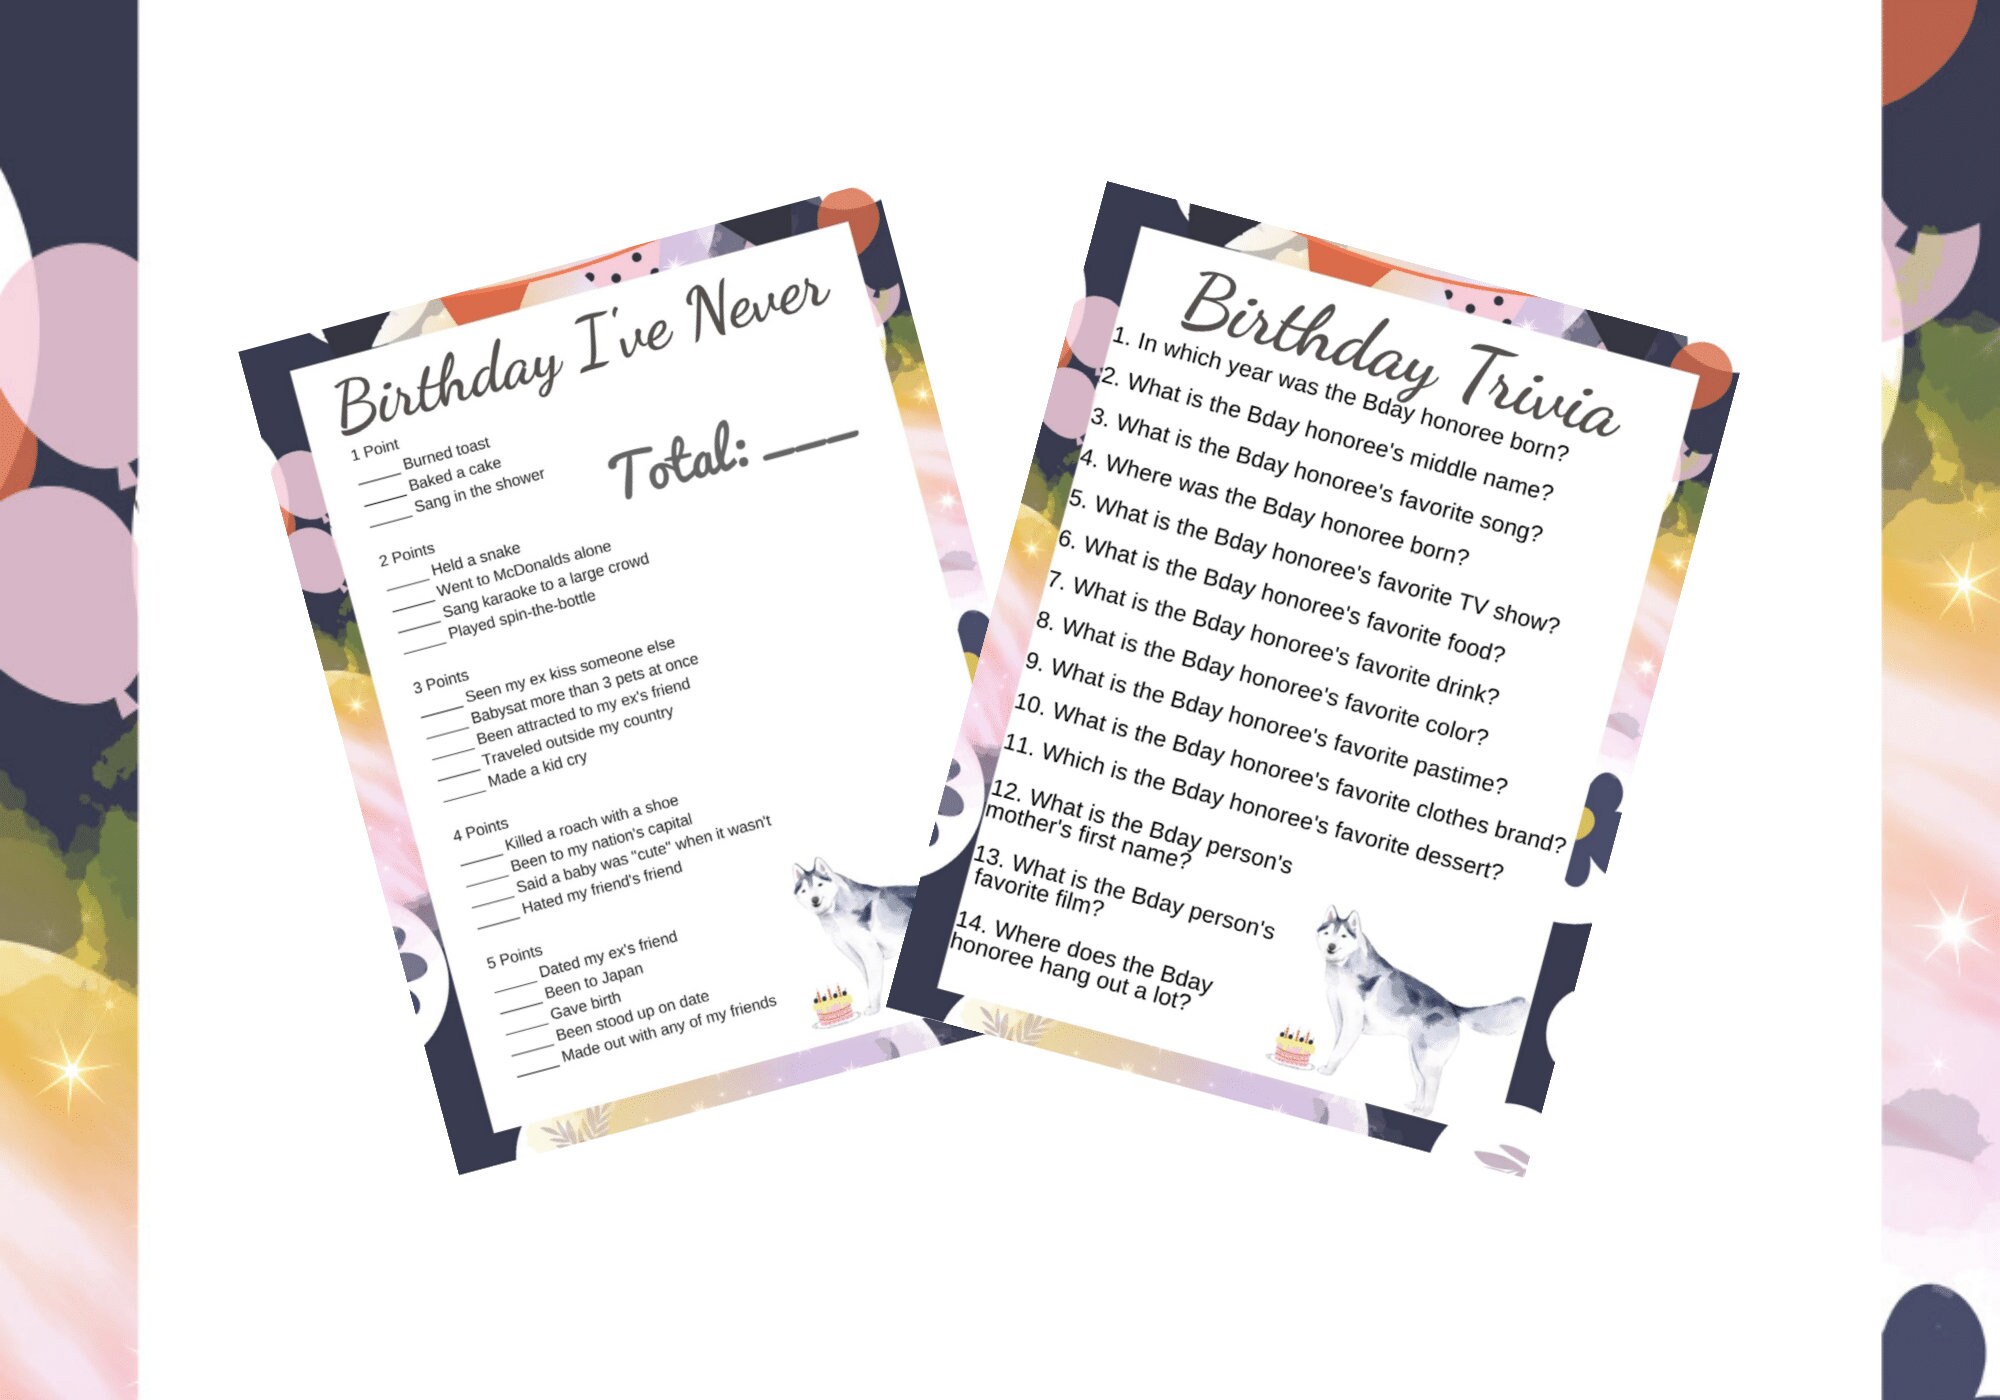 Birthday I've Never
Total: ___
1 Point
_____ Burned toast
_____ Baked a cake
_____ Sang in the shower
2 Points
_____ Held a snake
_____ Went to McDonalds alone
_____ Sang karaoke to a large crowd
_____ Played spin-the-bottle
3 Points
_____ Seen my ex kiss someone else
_____ Babysat more than 3 pets at once
_____ Been attracted to my ex's friend
_____ Traveled outside my country
_____ Made a kid cry
4 Points
_____ Killed a roach with a shoe
_____ Been to my nation's capital
_____ Said a baby was "cute" when it wasn't
_____ Hated my friend's friend
5 Points
_____ Dated my ex's friend
_____ Been to Japan
_____ Gave birth
_____ Been stood up on date
_____ Made out with any of my friends
Birthday Trivia
1. In which year was the Bday honoree born?
2. What is the Bday honoree's middle name?
3. What is the Bday honoree's favorite song?
4. Where was the Bday honoree born?
5. What is the Bday honoree's favorite TV show?
6. What is the Bday honoree's favorite food?
7. What is the Bday honoree's favorite drink?
8. What is the Bday honoree's favorite color?
9. What is the Bday honoree's favorite pastime?
10. What is the Bday honoree's favorite clothes brand?
11. Which is the Bday honoree's favorite dessert?
12. What is the Bday person's
mother's first name?
13. What is the Bday person's
favorite film?
14. Where does the Bday
honoree hang out a lot?